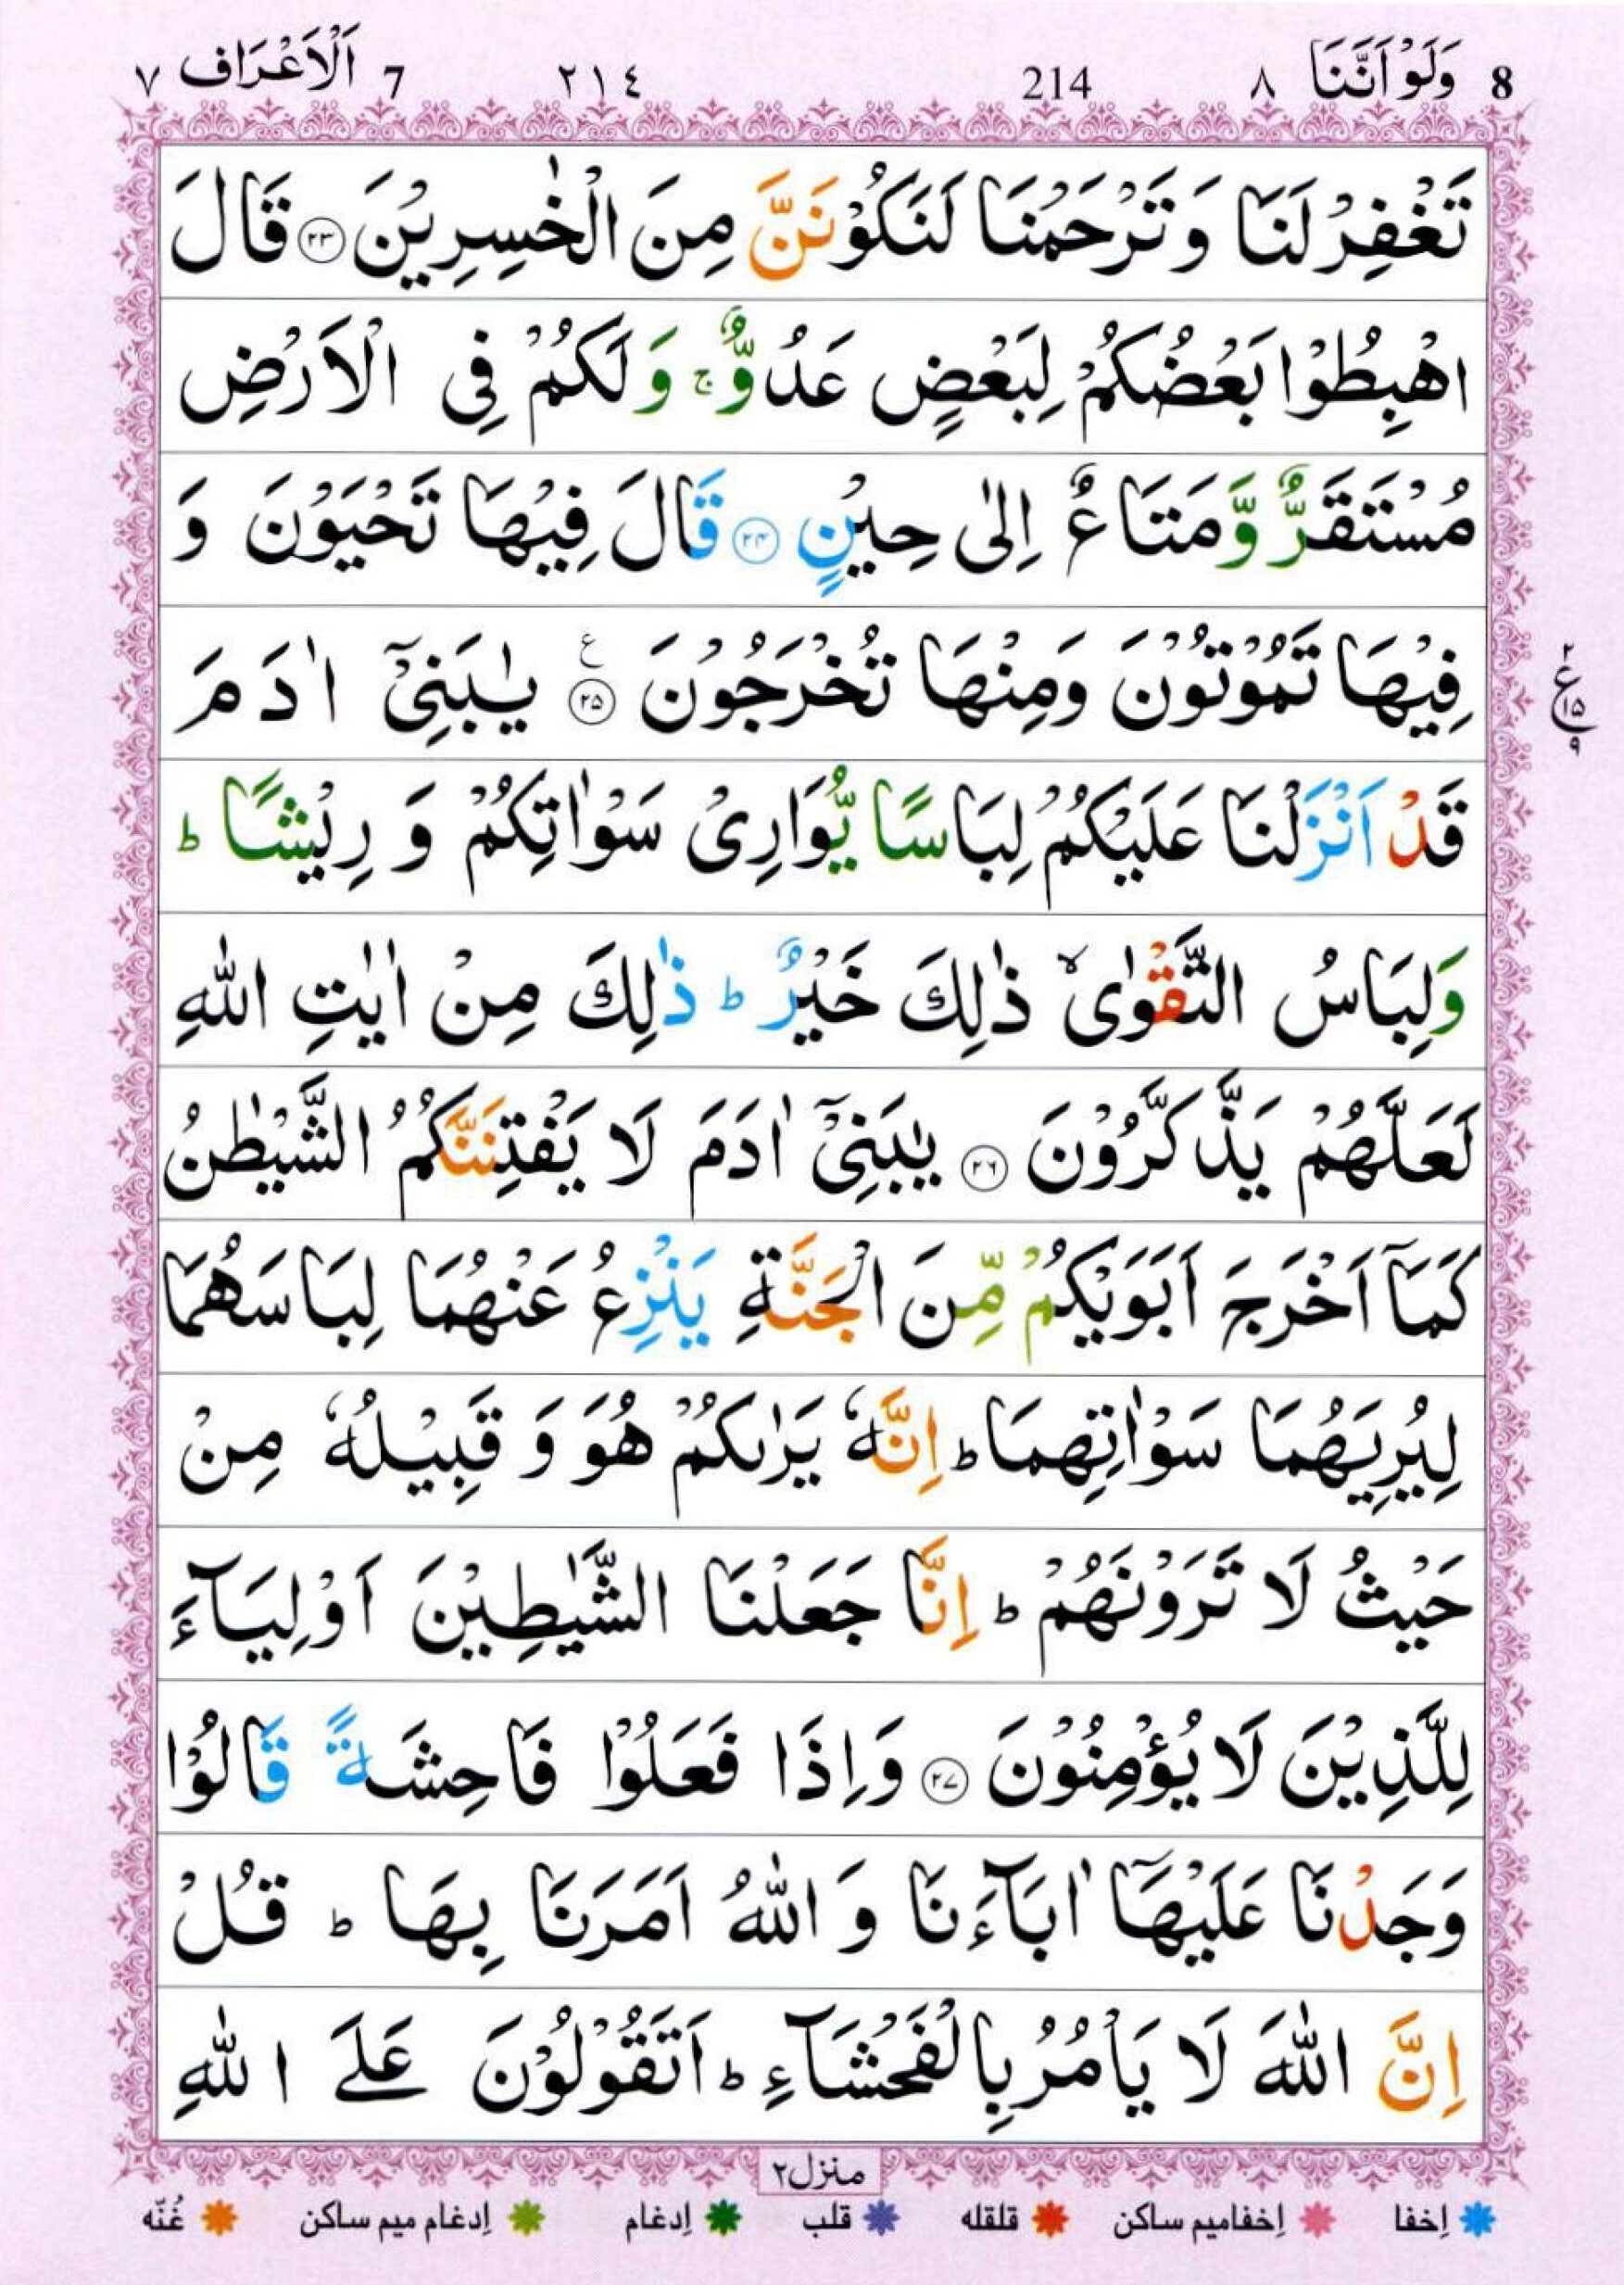 8 وَلَوْ اَنَّنَا ٨ 214 ٢١٤ 7 اَلْاَعْرَاف ٧
تَغْفِرْ لَنَا وَ تَرْحَمْنَا لَنَكُوْنَنَّ مِنَ الْخٰسِرِيْنَ ﴿۲۳﴾ قَالَ
اهْبِطُوْا بَعْضُكُمْ لِبَعْضٍ عَدُوٌّ ۚ وَ لَكُمْ فِى الْاَرْضِ
مُسْتَقَرٌّ وَّ مَتَاعٌ اِلٰى حِيْنٍ ﴿۲۴﴾ قَالَ فِيْهَا تَحْيَوْنَ وَ
فِيْهَا تَمُوْتُوْنَ وَمِنْهَا تُخْرَجُوْنَ ﴿۲۵﴾ ع يٰبَنِىْۤ اٰدَمَ
۲ ع ۱۵ ۹
قَدْ اَنْزَلْنَا عَلَيْكُمْ لِبَاسًا يُّوَارِىْ سَوْاٰتِكُمْ وَ رِيْشًا ؕ
وَلِبَاسُ التَّقْوٰى ۙ ذٰلِكَ خَيْرٌ ؕ ذٰلِكَ مِنْ اٰيٰتِ اللّٰهِ
لَعَلَّهُمْ يَذَّكَّرُوْنَ ﴿۲۶﴾ يٰبَنِىْۤ اٰدَمَ لَا يَفْتِنَنَّكُمُ الشَّيْطٰنُ
كَمَاۤ اَخْرَجَ اَبَوَيْكُمْ مِّنَ الْجَنَّةِ يَنْزِعُ عَنْهُمَا لِبَاسَهُمَا
لِيُرِيَهُمَا سَوْاٰتِهِمَا ؕ اِنَّهٗ يَرٰىكُمْ هُوَ وَ قَبِيْلُهٗ مِنْ
حَيْثُ لَا تَرَوْنَهُمْ ؕ اِنَّا جَعَلْنَا الشَّيٰطِيْنَ اَوْلِيَآءَ
لِلَّذِيْنَ لَا يُؤْمِنُوْنَ ﴿۲۷﴾ وَاِذَا فَعَلُوْا فَاحِشَةً قَالُوْا
وَجَدْنَا عَلَيْهَاۤ اٰبَآءَنَا وَ اللّٰهُ اَمَرَنَا بِهَا ؕ قُلْ
اِنَّ اللّٰهَ لَا يَاْمُرُ بِالْفَحْشَآءِ ؕ اَتَقُوْلُوْنَ عَلَى اللّٰهِ
منزل۲
إخفا إخفامیم ساکن قلقله قلب إدغام إدغام میم ساکن غُنّه